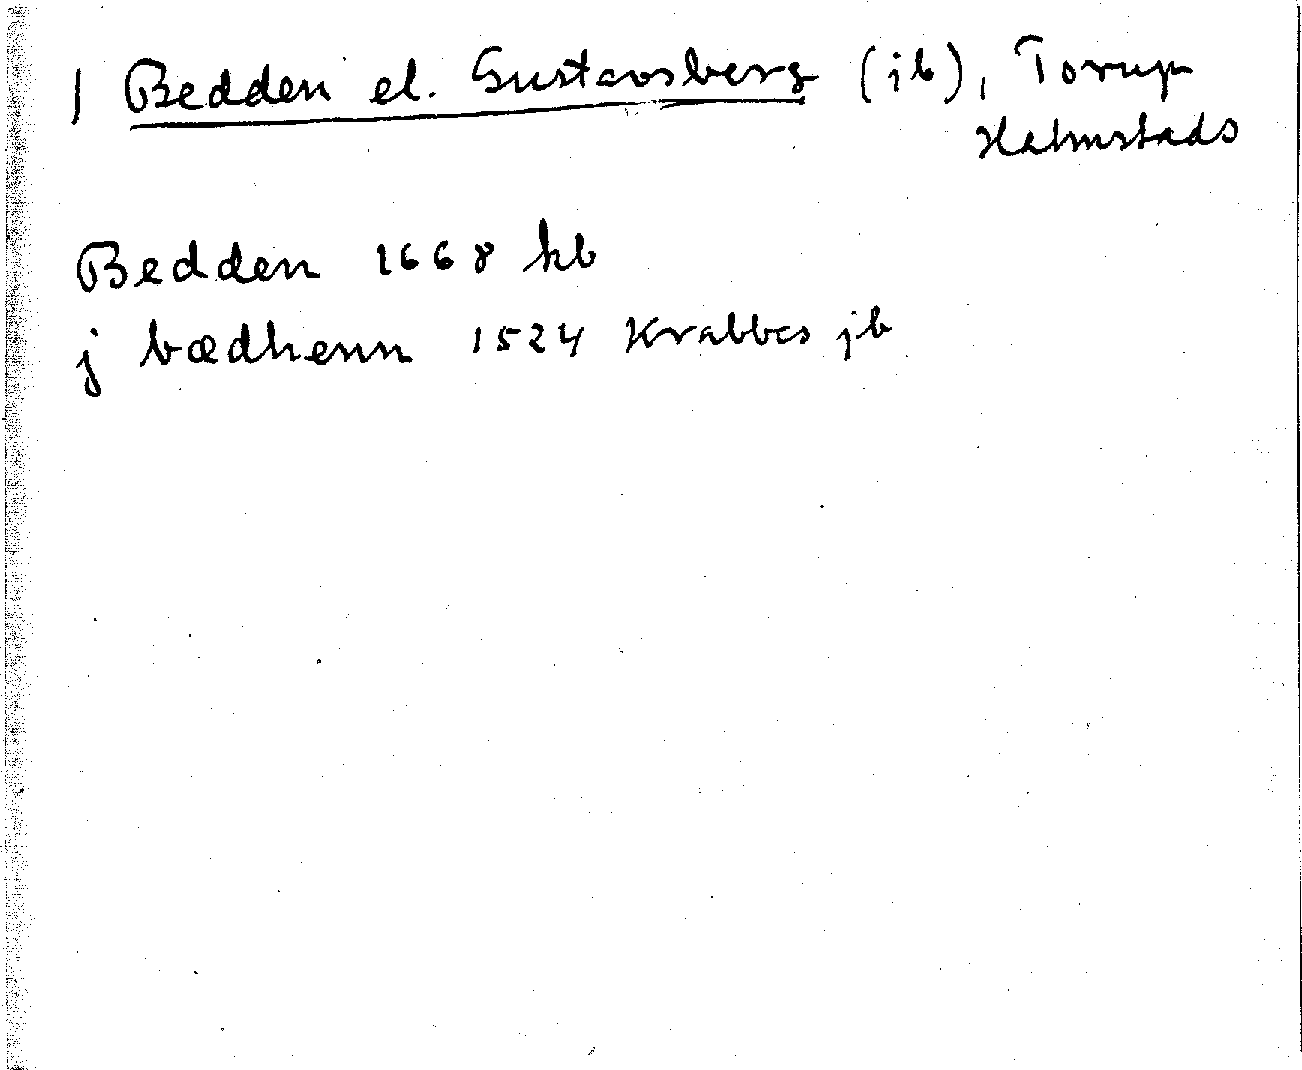 1 Bedden el. Gustavsberg (jb), Torup
Halmstads
Bedden 1668 kb
j bædhenn 1524 Krabbes jb